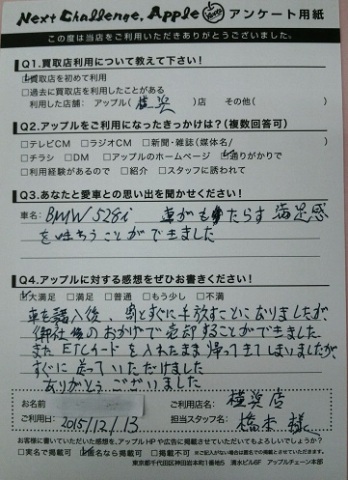 Next Challenge, Apple アンケート用紙
この度は当店をご利用いただきありがとうございました。
Q1.買取店利用について教えて下さい!
☑買取店を初めて利用
□過去に買取店を利用したことがある
利用した店舗: アップル( 横浜 )店 その他( )
Q2.アップルをご利用になったきっかけは?(複数回答可)
□テレビCM □ラジオCM □新聞・雑誌(媒体名/ )
□チラシ □DM □アップルのホームページ ☑通りがかりで
□利用経験があるので □紹介 □スタッフに誘われて
Q3.あなたと愛車との思い出を聞かせください!
車名: BMW/528i 車がもたらす満足感
を味わうことができました
Q4.アップルに対する感想をぜひお書きください!
☑大満足 □満足 □普通 □もう少し □不満
車を購入後、割とすぐに手放すことになりましたが、
御社様のおかげで売却することができました
また ETCカードを入れたまま帰ってきてしまいましたが、
すぐに送っていただけました
ありがとうございました
お名前 ご利用店名: 横浜店
ご利用日: 2015/12/13 担当スタッフ名: 橋本様
お客様に書いていただいた感想を、アップルHPや広告に掲載させていただいてもよろしいでしょうか?
□実名で掲載可 ☑匿名なら掲載可 □不可
東京都千代田区神田岩本町1番地5 清水ビル8F アップルチェーン本部